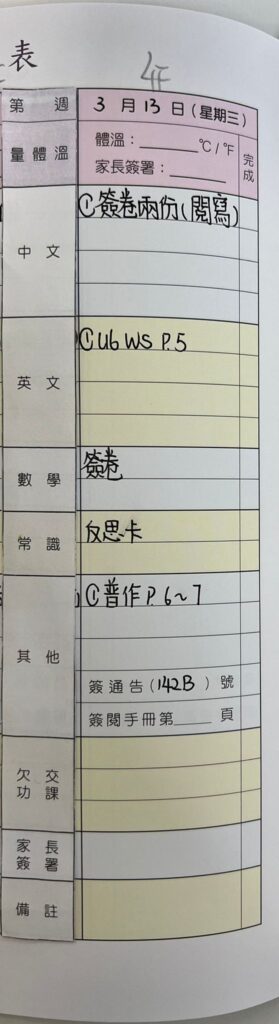 表
第 週 3 月 13 日 (星期三)
量體溫 體溫:______°C/°F 完成
家長簽署:______
中文 ①簽卷兩份(閱寫)
英文 ①U6 WS P.5
數學 簽卷
常識 反思卡
其他 ①普作 P.6~7
簽通告(142B)號
簽閱手冊第____頁
欠交功課
家長簽署
備註